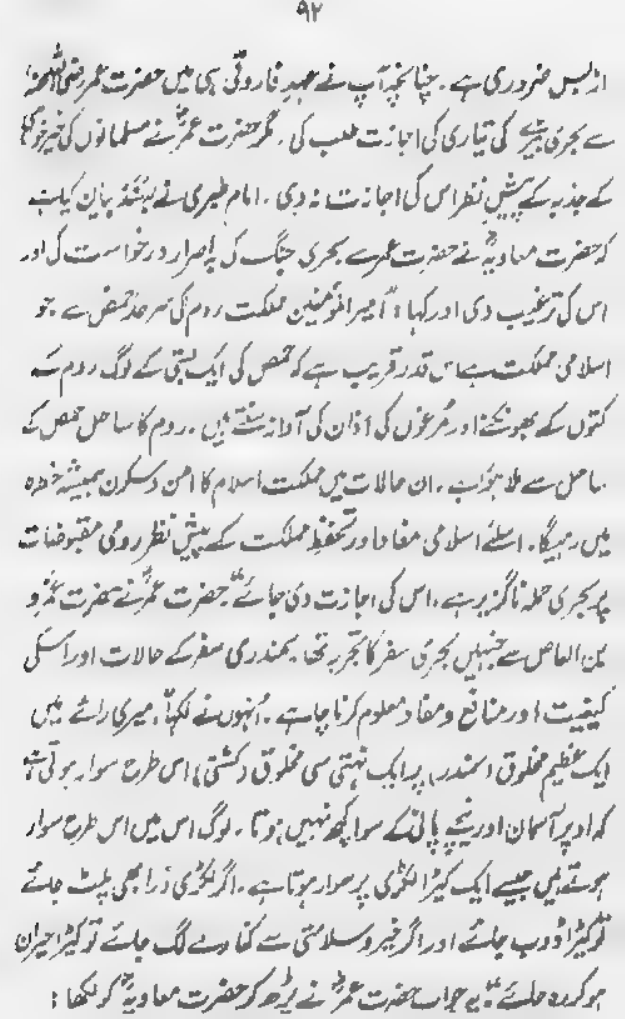 ۹۲
ازبس ضروری ہے۔ چنانچہ آپ نے عہدِ فاروقی ہی میں حضرت عمر رضی اللہ عنہ
سے بحری بیڑے کی تیاری کی اجازت طلب کی۔ مگر حضرت عمرؓ نے مسلمانوں کی خیرخواہی
کے جذبہ کے پیشِ نظر اس کی اجازت نہ دی۔ امام طبری نے بسند بیان کیا ہے
کہ حضرت معاویہؓ نے حضرت عمر سے بحری جنگ کی باصرار درخواست کی اور
اس کی ترغیب دی اور کہا: "امیر المؤمنین مملکت روم کی سرحد حمص سے جو
اسلامی مملکت ہے اس قدر قریب ہے کہ حمص کی ایک بستی کے لوگ روم کے
کتوں کے بھونکنے اور مرغوں کی اذان کی آواز سنتے ہیں۔ روم کا ساحل حمص کے
ساحل سے ملا ہوا ہے۔ ان حالات میں مملکت اسلام کا امن و سکون ہمیشہ خطرہ
میں رہیگا۔ اسلئے اسلامی مفاد اور تحفظِ مملکت کے پیشِ نظر رومی مقبوضات
پر بحری حملہ ناگزیر ہے۔ اس کی اجازت دی جائے" حضرت عمرؓ نے حضرت عمرو
بن العاص سے جنہیں بحری سفر کا تجربہ تھا۔ سمندری سفر کے حالات اور اسکی
کیفیت اور منافع و مفاد معلوم کرنا چاہے۔ اُنہوں نے لکھا"۔ میری رائے میں
ایک عظیم مخلوق (سمندر) پر ایک ننھی سی مخلوق (کشتی) اس طرح سوار ہوتی ہے
کہ اوپر آسمان اور نیچے پانی کے سوا کچھ نہیں ہوتا۔ لوگ اس میں اس طرح سوار
ہوتے ہیں جیسے ایک کیڑا لکڑی پر سوار ہوتا ہے۔ اگر لکڑی ذرا بھی پلٹ جائے
تو کیڑا ڈوب جائے اور اگر خیر و سلامتی سے کنارے لگ جائے تو کیڑا حیران
ہو کر رہ جائے" یہ جواب حضرت عمرؓ نے پڑھ کر حضرت معاویہؓ کو لکھا: